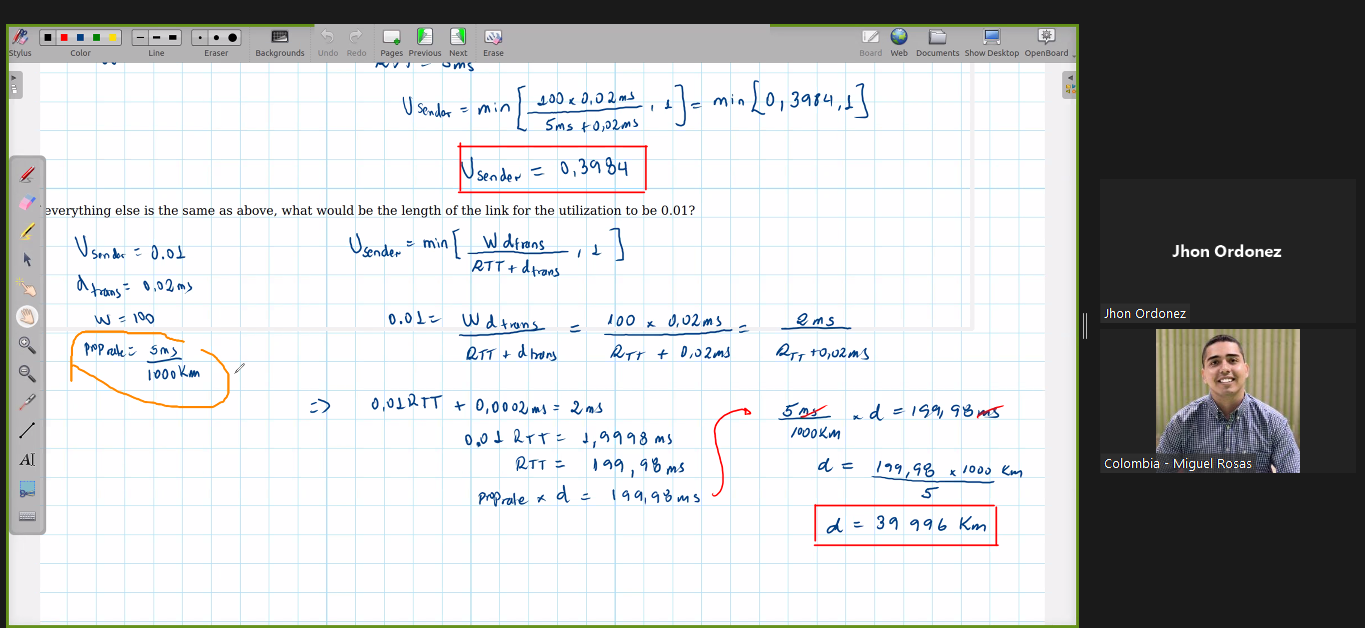 Stylus
Color
Line
Eraser
Backgrounds
Undo
Redo
Pages
Previous
Next
Erase
Board
Web
Documents
Show Desktop
OpenBoard
RTT = 5ms
Usender = min[100 x 0,02ms / 5ms + 0,02ms , 1] = min[0,3984,1]
Usender = 0,3984
everything else is the same as above, what would be the length of the link for the utilization to be 0.01?
Usender = 0.01
dtrans = 0,02ms
W = 100
Prop rate = 5ms / 1000Km
Usender = min[W dtrans / RTT + dtrans , 1]
0.01 = W dtrans / RTT + dtrans = 100 x 0,02ms / RTT + 0,02ms = 2ms / RTT + 0,02ms
=> 0,01RTT + 0,0002ms = 2ms
0,01 RTT = 1,9998ms
RTT = 199,98ms
Prop rate x d = 199,98ms
5ms / 1000Km x d = 199,98ms
d = 199,98 x 1000 Km / 5
d = 39 996 Km
AI
Jhon Ordonez
Jhon Ordonez
Colombia - Miguel Rosas